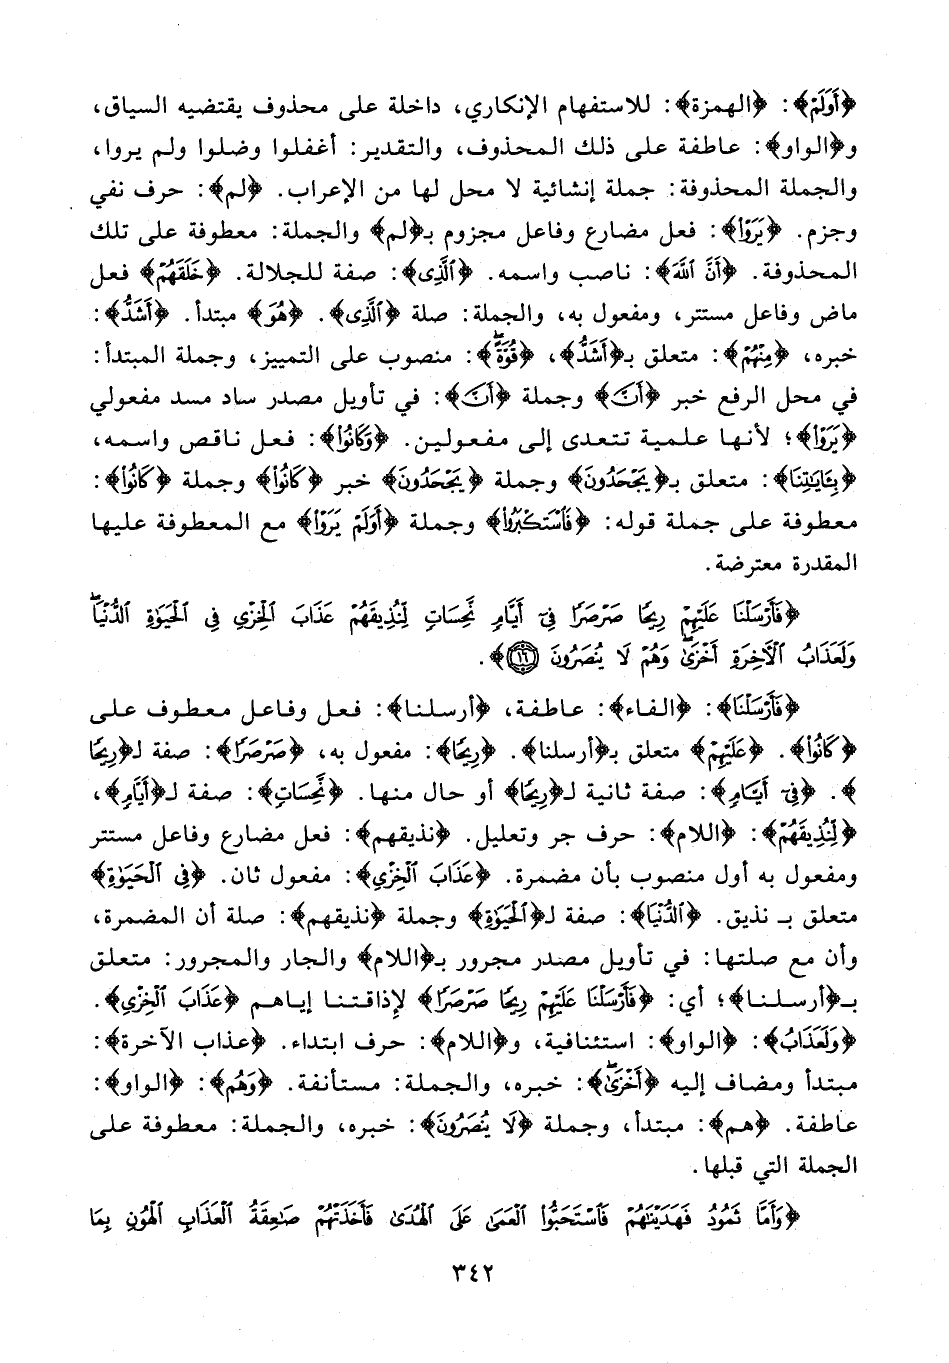 ﴿أَوَلَمْ﴾: ﴿الهمزة﴾: للاستفهام الإنكاري، داخلة على محذوف يقتضيه السياق،
و﴿الواو﴾: عاطفة على ذلك المحذوف، والتقدير: أغفلوا وضلوا ولم يروا،
والجملة المحذوفة: جملة إنشائية لا محل لها من الإعراب. ﴿لم﴾: حرف نفي
وجزم. ﴿يَرَوْا﴾: فعل مضارع وفاعل مجزوم بـ﴿لم﴾ والجملة: معطوفة على تلك
المحذوفة. ﴿أَنَّ اللَّهَ﴾: ناصب واسمه. ﴿الَّذِى﴾: صفة للجلالة. ﴿خَلَقَهُمْ﴾ فعل
ماض وفاعل مستتر، ومفعول به، والجملة: صلة ﴿الَّذِى﴾. ﴿هُوَ﴾ مبتدأ. ﴿أَشَدُّ﴾:
خبره، ﴿مِنْهُمْ﴾: متعلق بـ﴿أَشَدُّ﴾، ﴿قُوَّةً﴾: منصوب على التمييز، وجملة المبتدأ:
في محل الرفع خبر ﴿أَنَّ﴾ وجملة ﴿أَنَّ﴾: في تأويل مصدر ساد مسد مفعولي
﴿يَرَوْا﴾؛ لأنها علمية تتعدى إلى مفعولين. ﴿وَكَانُوا﴾: فعل ناقص واسمه،
﴿بِـَٔايَـٰتِنَا﴾: متعلق بـ﴿يَجْحَدُونَ﴾ وجملة ﴿يَجْحَدُونَ﴾ خبر ﴿كَانُوا﴾ وجملة ﴿كَانُوا﴾:
معطوفة على جملة قوله: ﴿فَاسْتَكْبَرُوا﴾ وجملة ﴿أَوَلَمْ يَرَوْا﴾ مع المعطوفة عليها
المقدرة معترضة.
﴿فَأَرْسَلْنَا عَلَيْهِمْ رِيحًا صَرْصَرًا فِىٓ أَيَّامٍ نَّحِسَاتٍ لِّنُذِيقَهُمْ عَذَابَ الْخِزْىِ فِى الْحَيَوٰةِ الدُّنْيَا ۖ
وَلَعَذَابُ الْـَٔاخِرَةِ أَخْزَىٰ ۖ وَهُمْ لَا يُنصَرُونَ ١٦﴾.
﴿فَأَرْسَلْنَا﴾: ﴿الفاء﴾: عاطفة، ﴿أرسلنا﴾: فعل وفاعل معطوف على
﴿كَانُوا﴾. ﴿عَلَيْهِمْ﴾ متعلق بـ﴿أرسلنا﴾. ﴿رِيحًا﴾: مفعول به، ﴿صَرْصَرًا﴾: صفة لـ﴿رِيحًا
﴾. ﴿فِىٓ أَيَّامٍ﴾: صفة ثانية لـ﴿رِيحًا﴾ أو حال منها. ﴿نَّحِسَاتٍ﴾: صفة لـ﴿أَيَّامٍ﴾،
﴿لِّنُذِيقَهُمْ﴾: ﴿اللام﴾: حرف جر وتعليل. ﴿نذيقهم﴾: فعل مضارع وفاعل مستتر
ومفعول به أول منصوب بأن مضمرة. ﴿عَذَابَ الْخِزْىِ﴾: مفعول ثان. ﴿فِى الْحَيَوٰةِ﴾
متعلق بـ نذيق. ﴿الدُّنْيَا﴾: صفة لـ﴿الْحَيَوٰةِ﴾ وجملة ﴿نذيقهم﴾: صلة أن المضمرة،
وأن مع صلتها: في تأويل مصدر مجرور بـ﴿اللام﴾ والجار والمجرور: متعلق
بـ﴿أرسلنا﴾؛ أي: ﴿فَأَرْسَلْنَا عَلَيْهِمْ رِيحًا صَرْصَرًا﴾ لإذاقتنا إياهم ﴿عَذَابَ الْخِزْىِ﴾.
﴿وَلَعَذَابُ﴾: ﴿الواو﴾: استئنافية، و﴿اللام﴾: حرف ابتداء. ﴿عذاب الآخرة﴾:
مبتدأ ومضاف إليه ﴿أَخْزَىٰ ۖ﴾: خبره، والجملة: مستأنفة. ﴿وَهُمْ﴾: ﴿الواو﴾:
عاطفة. ﴿هم﴾: مبتدأ، وجملة ﴿لَا يُنصَرُونَ﴾: خبره، والجملة: معطوفة على
الجملة التي قبلها.
﴿وَأَمَّا ثَمُودُ فَهَدَيْنَـٰهُمْ فَاسْتَحَبُّوا الْعَمَىٰ عَلَى الْهُدَىٰ فَأَخَذَتْهُمْ صَـٰعِقَةُ الْعَذَابِ الْهُونِ بِمَا
٣٤٢